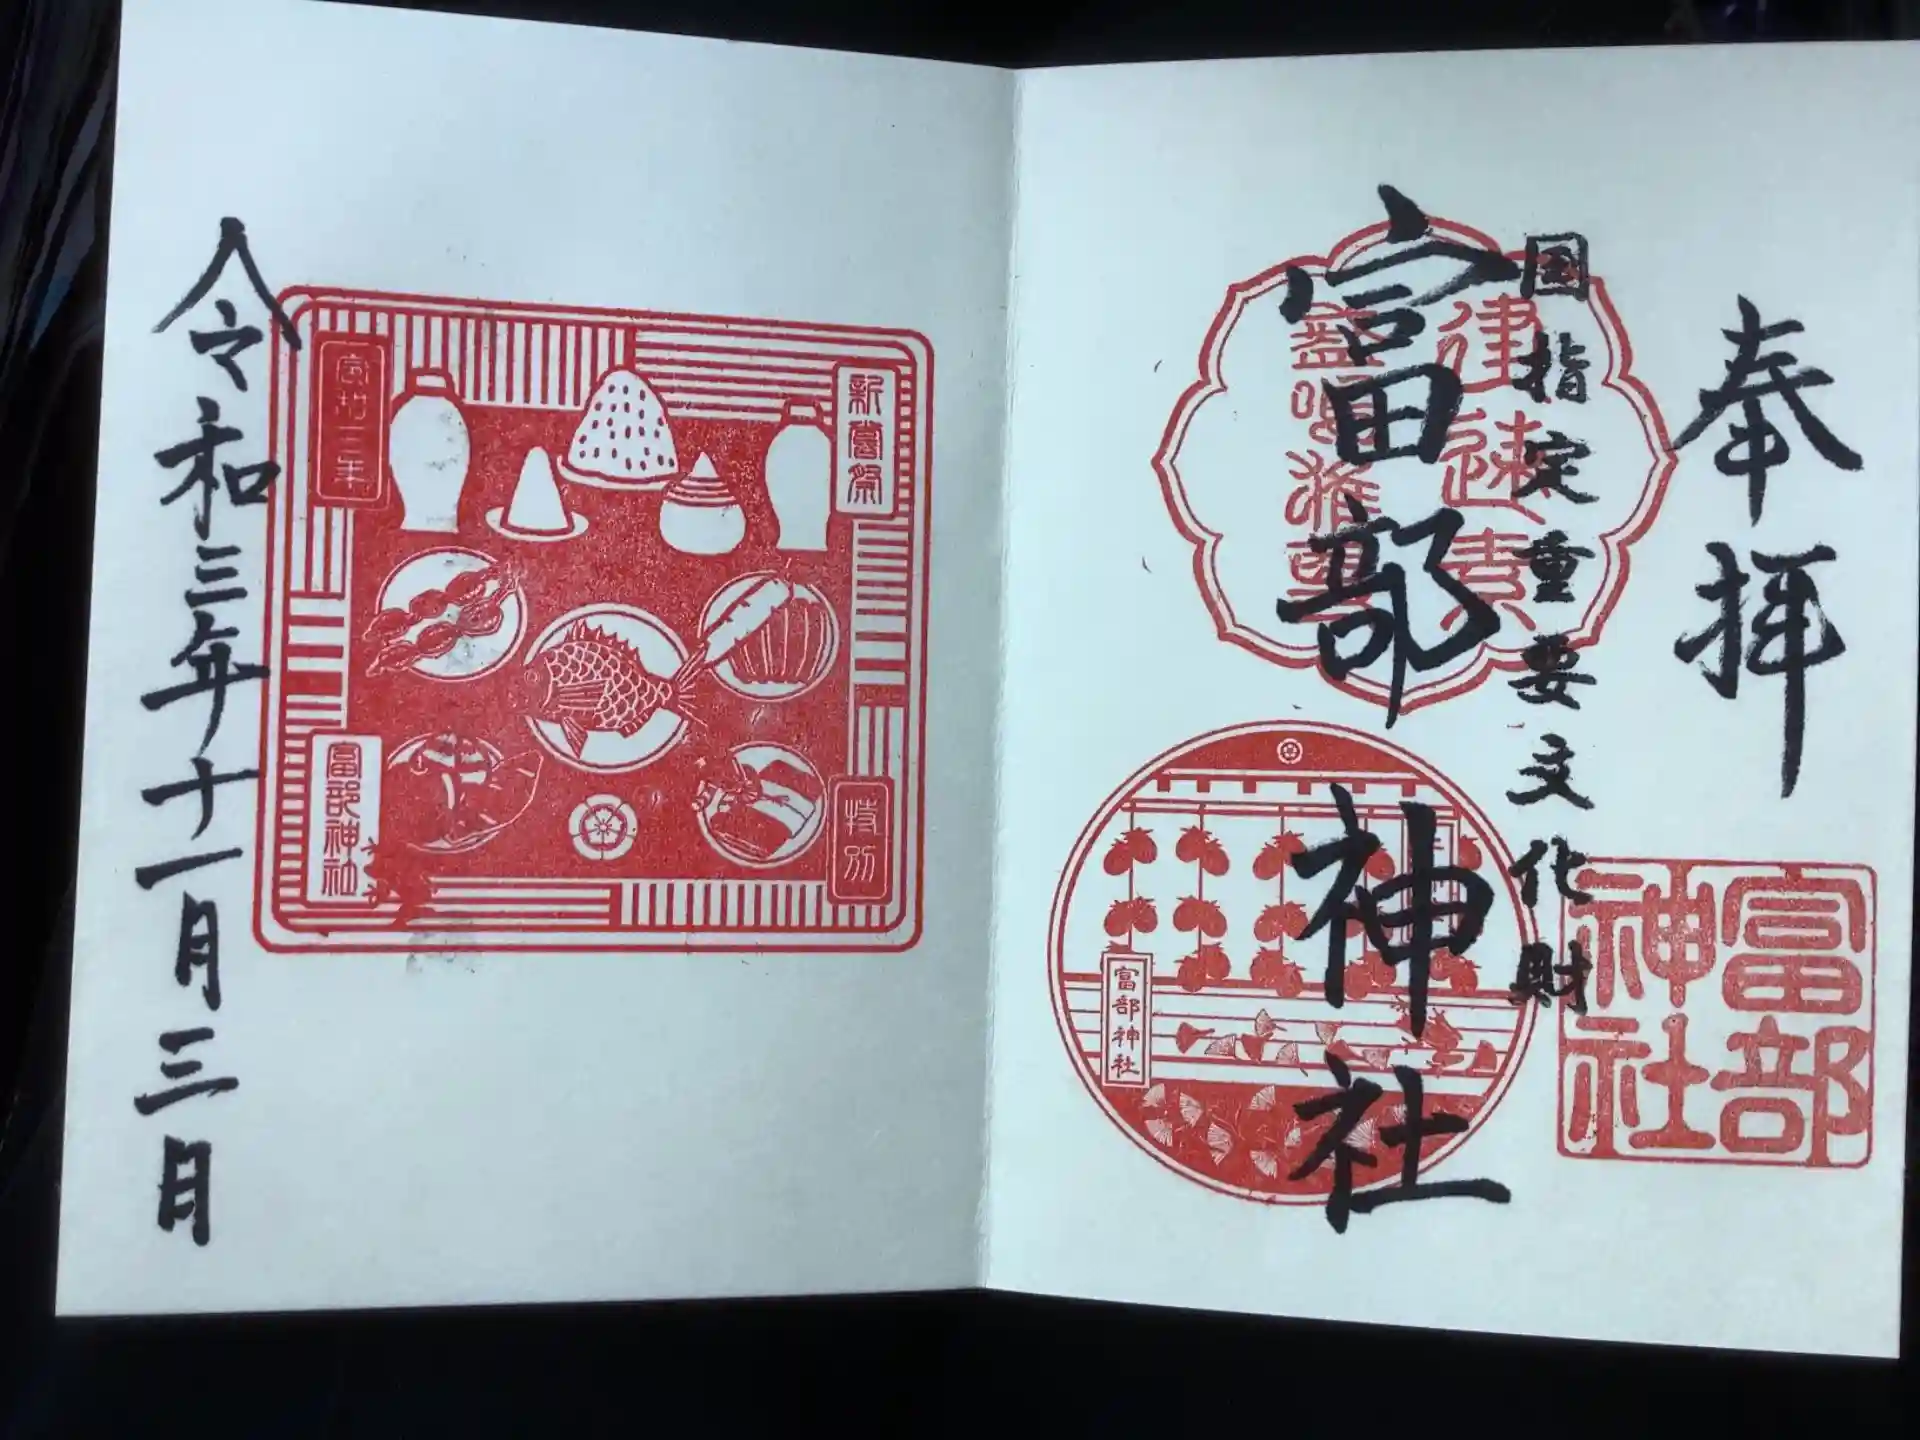 奉拝
国指定重要文化財
富部神社
富部
神社
富部神社
新嘗祭
特別
富部神社
令和三年十一月三日